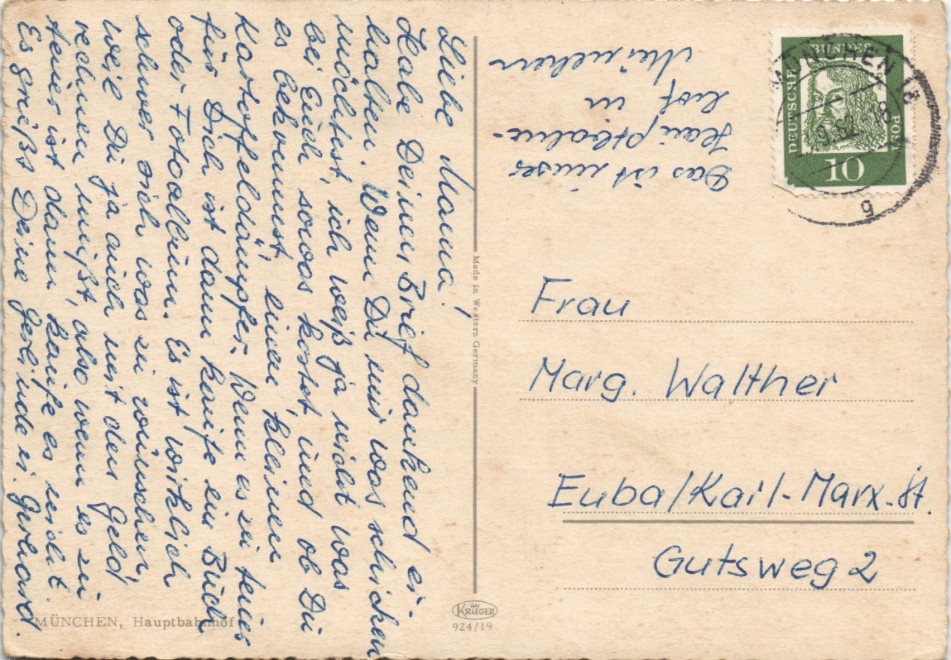 Liebe Mama!
Habe Deinen Brief dankend er-
halten. Wenn Du mir was schicken
möchtest, ich weiß ja nicht was
bei Euch sowas kostet und ob Du
es bekommst einen kleinen
Kartoffeldämpfer. Wenn es zu teuer
für Dich ist dann kaufe ein Buch
oder Fotoalbum. Es ist wirklich
schwer sich was zu wünschen,
weil Du ja auch mit den Geld
rechnen mußt, also wenn es zu
teuer ist dann kaufe es nicht.
Es grüßt Deine Gerlinde u. Gerhard.
MÜNCHEN, Hauptbahnhof
Made in Western Germany
KRÜGER
924/19
Das ist unser
Hauptbahn-
hof in
München
DEUTSCHE
BUNDES
POST
10
MÜNCHEN 8
9.62.-18
g
Frau
Marg. Walther
Euba/Karl-Marx-St.
Gutsweg 2